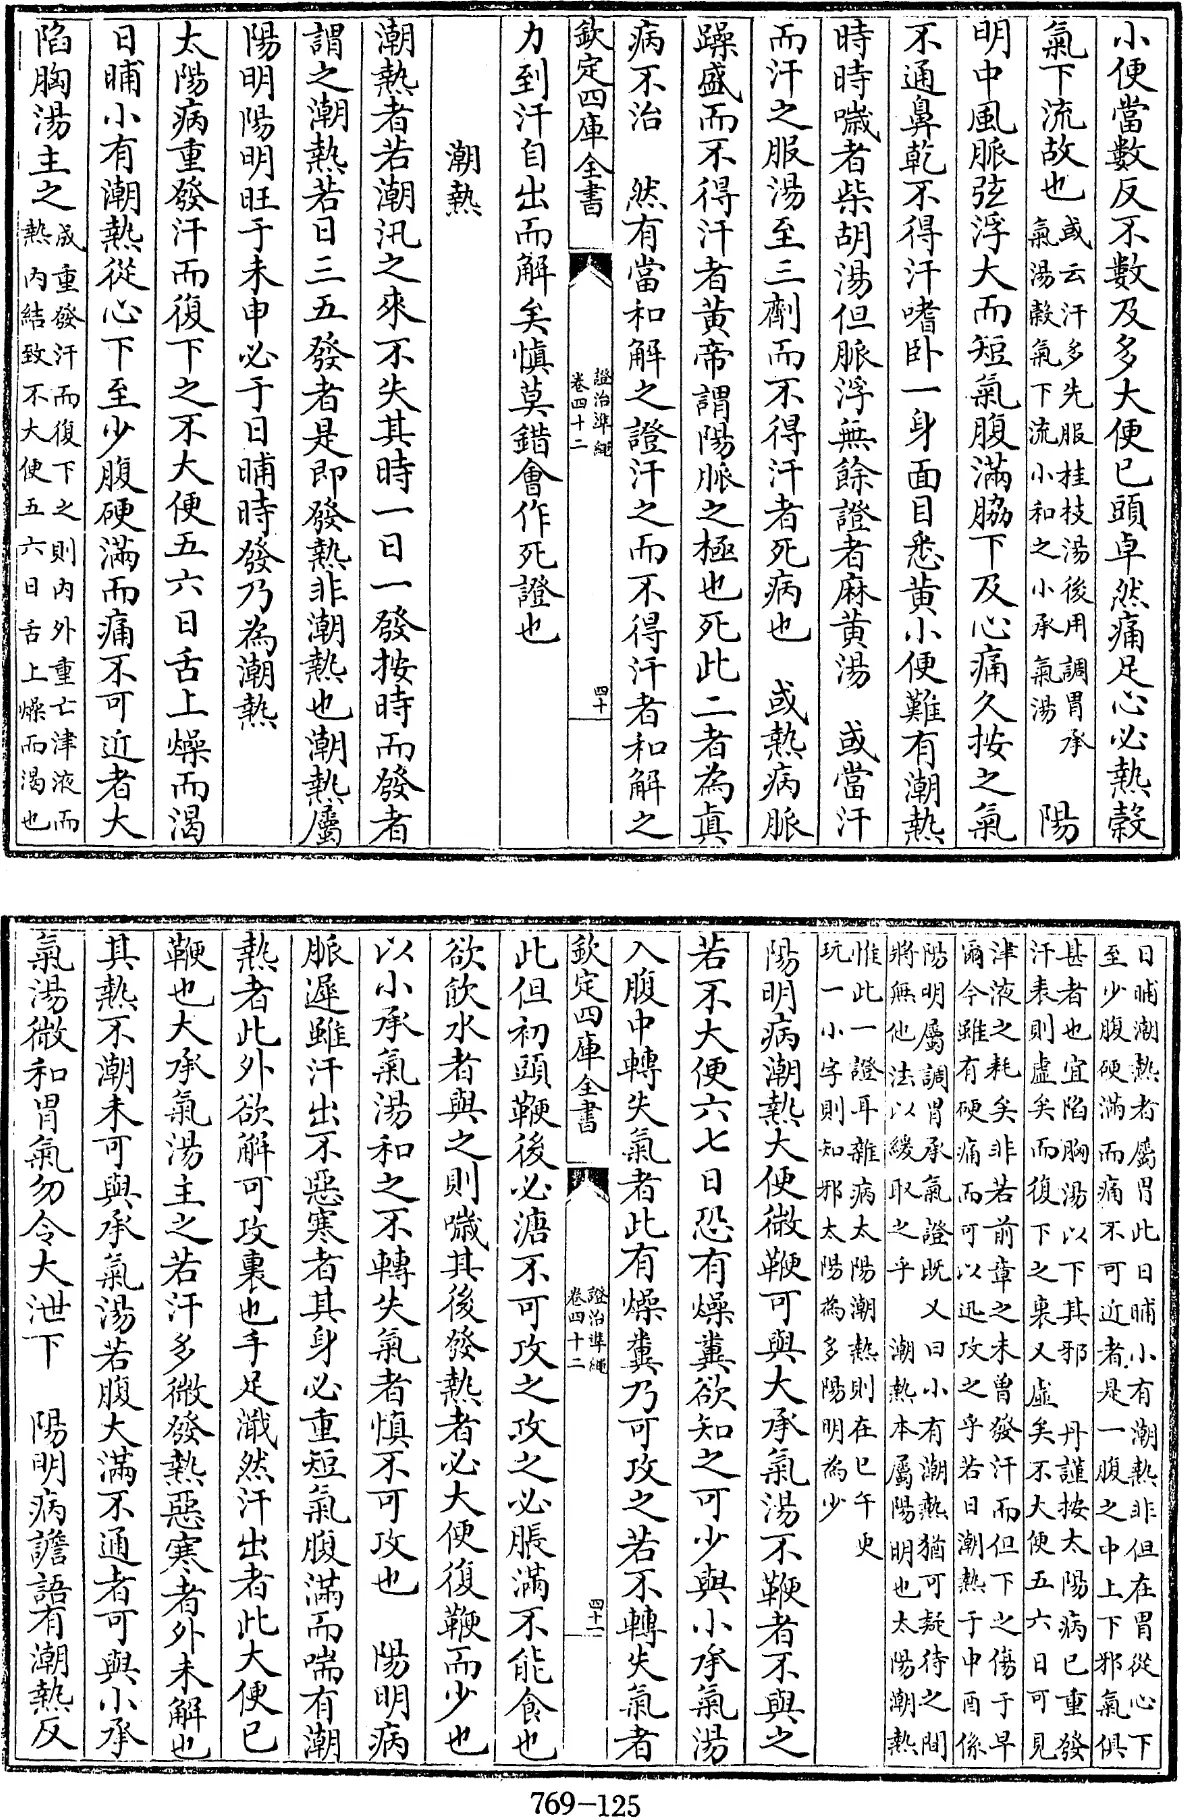 小便當數反不數及多大便已頭卓然痛足心必熱穀
氣下流故也
或云汗多先服桂枝湯後用調胃承
氣湯穀氣下流小和之小承氣湯
陽
明中風脈弦浮大而短氣腹滿脇下及心痛久按之氣
不通鼻乾不得汗嗜卧一身面目悉黄小便難有潮熱
時時噦者柴胡湯但脈浮無餘證者麻黄湯 或當汗
而汗之服湯至三劑而不得汗者死病也 或熱病脈
躁盛而不得汗者黄帝謂陽脈之極也死此二者為真
病不治 然有當和解之證汗之而不得汗者和解之
欽定四庫全書
證治準繩
卷四十二
四十
力到汗自出而解矣慎莫錯會作死證也
潮熱
潮熱者若潮汛之來不失其時一日一發按時而發者
謂之潮熱若日三五發者是即發熱非潮熱也潮熱屬
陽明陽明旺于未申必于日晡時發乃為潮熱
太陽病重發汗而復下之不大便五六日舌上燥而渴
日晡小有潮熱從心下至少腹硬滿而痛不可近者大
陷胸湯主之
成重發汗而復下之則内外重亡津液而
熱内結致不大便五六日舌上燥而渴也
日晡潮熱者屬胃此日晡小有潮熱非但在胃從心下
至少腹硬滿而痛不可近者是一腹之中上下邪氣俱
甚者也宜陷胸湯以下其邪 丹謹按太陽病已重發
汗表則虛矣而復下之裏又虛矣不大便五六日可見
津液之耗矣非若前章之未曾發汗而但下之傷于早
爾今雖有硬痛而可以迅攻之乎若日潮熱于申酉係
陽明屬調胃承氣證既又曰小有潮熱猶可疑待之間
將無他法以緩取之乎 潮熱本屬陽明也太陽潮熱
惟此一證耳雜病太陽潮熱則在巳午更
玩一小字則知邪太陽為多陽明為少
陽明病潮熱大便微鞕可與大承氣湯不鞕者不與之
若不大便六七日恐有燥糞欲知之可少與小承氣湯
入腹中轉失氣者此有燥糞乃可攻之若不轉失氣者
欽定四庫全書
證治準繩
卷四十二
四十一
此但初頭鞕後必溏不可攻之攻之必脹滿不能食也
欲飲水者與之則噦其後發熱者必大便復鞕而少也
以小承氣湯和之不轉失氣者慎不可攻也 陽明病
脈遲雖汗出不惡寒者其身必重短氣腹滿而喘有潮
熱者此外欲解可攻裏也手足濈然汗出者此大便已
鞕也大承氣湯主之若汗多微發熱惡寒者外未解也
其熱不潮未可與承氣湯若腹大滿不通者可與小承
氣湯微和胃氣勿令大泄下 陽明病譫語有潮熱反
769-125